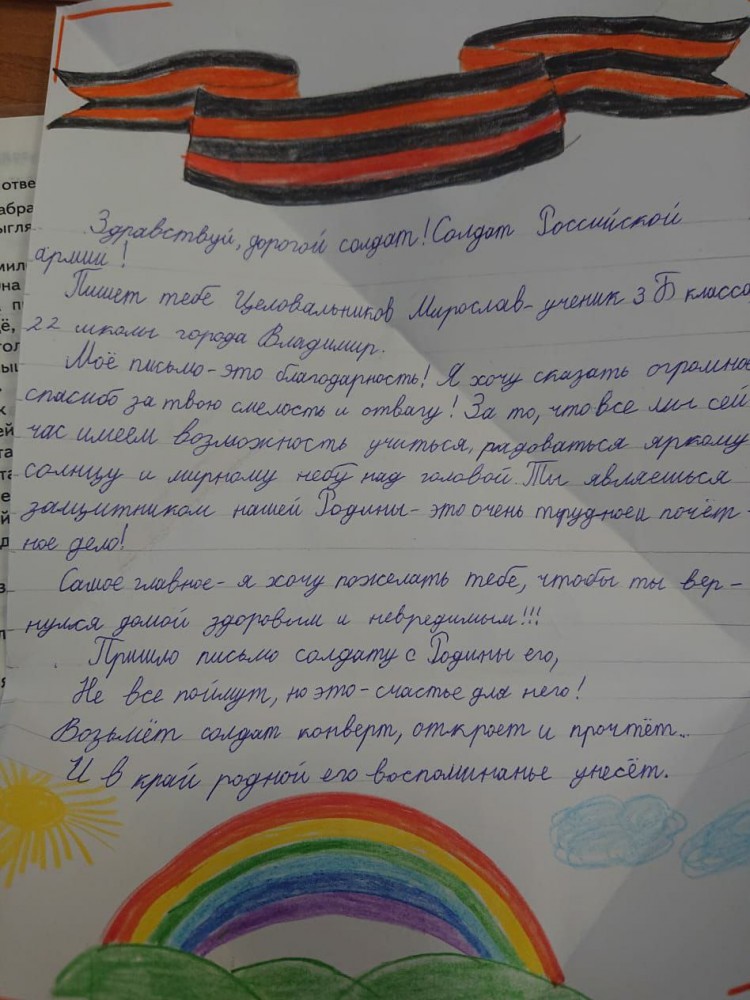 Здравствуй, дорогой солдат! Солдат Российской
армии!
Пишет тебе Целовальников Мирослав - ученик 3 Б класса
22 школы города Владимир.
Моё письмо - это благодарность! Я хочу сказать огромное
спасибо за твою смелость и отвагу! За то, что все мы сей
час имеем возможность учиться, радоваться яркому
солнцу и мирному небу над головой. Ты являешься
защитником нашей Родины - это очень трудное и почёт -
ное дело!
Самое главное - я хочу пожелать тебе, чтобы ты вер -
нулся домой здоровым и невредимым!!!
Пришло письмо солдату с Родины его,
Не все поймут, но это - счастье для него!
Возьмёт солдат конверт, откроет и прочтёт...
И в край родной его воспоминанье унесёт.